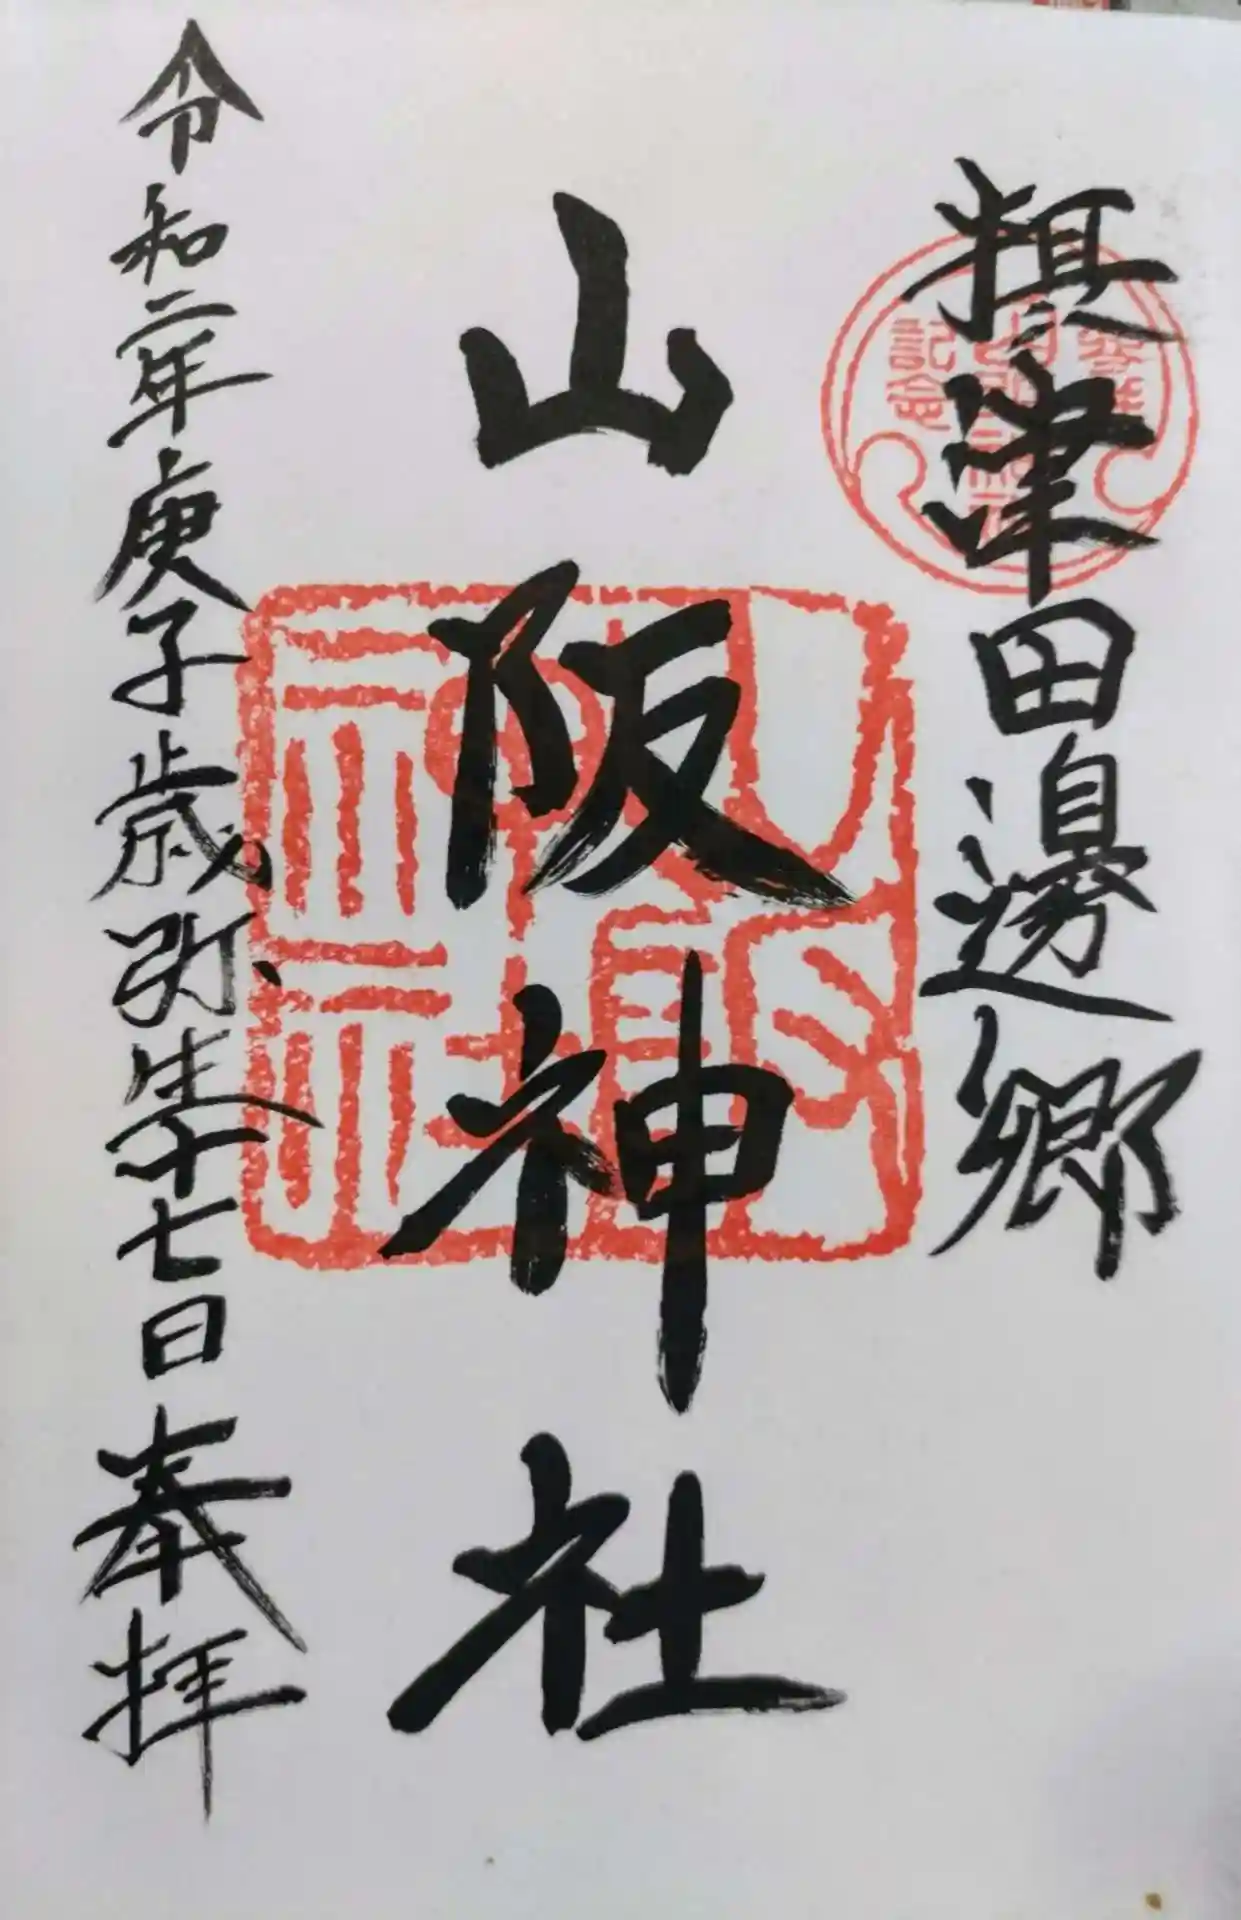 摂津田邊郷
山阪神社
令和二年庚子歳弥生十七日奉拝
参拝
記念